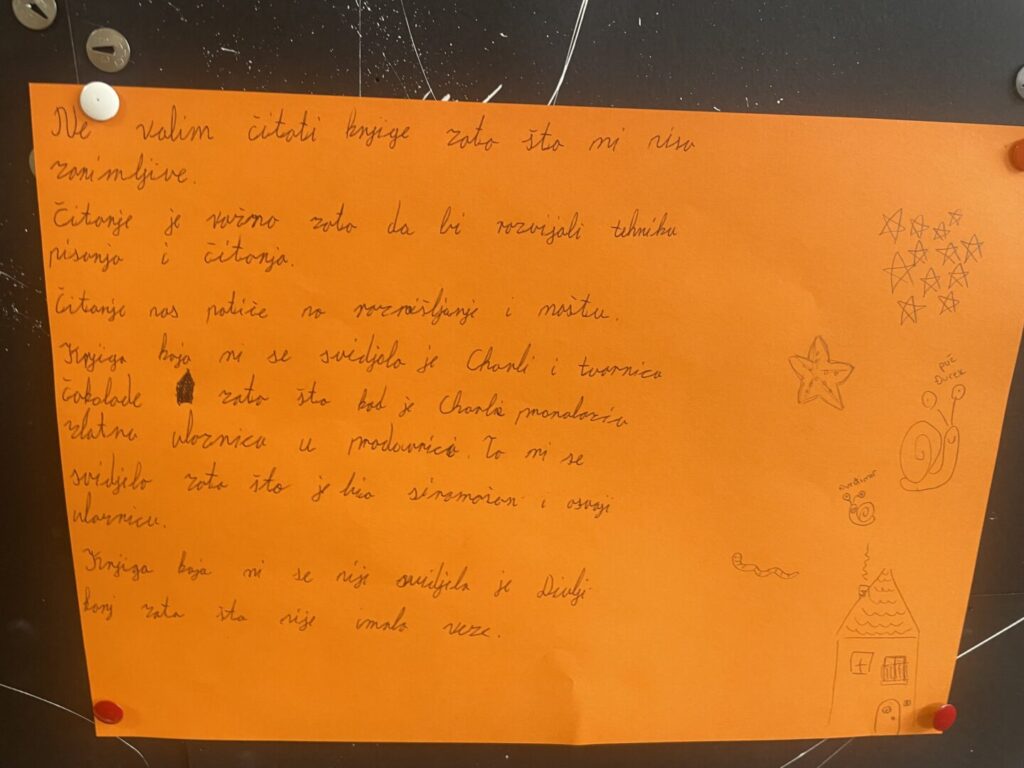 Ne volim čitati knjige zato što mi nisu
zanimljive.
Čitanje je važno zato da bi razvijali tehniku
pisanja i čitanja.
Čitanje nas potiče na razmišljanje i maštu.
Knjiga koja mi se svidjela je Charli i tvornica
čokolade zato što kad je Charli pronalazio
zlatnu ulaznicu u prodavnici. To mi se
svidjelo zato što je bio siromašan i osvoji
ulaznicu.
Knjiga koja mi se nije svidjela je Divlji
konj zato što nije imala veze.
puž
Turek